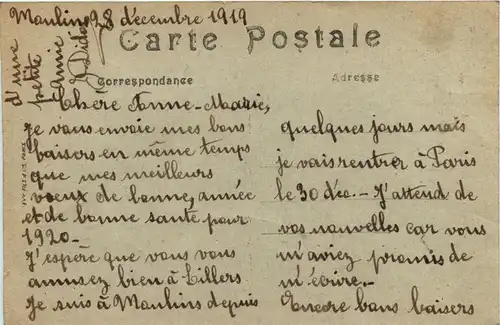 Moulins 28 décembre 1919
Carte Postale
Correspondance
Adresse
Chère Anne-Marie,
Je vous envoie mes bons
baisers en même temps
que mes meilleurs
voeux de bonne, année
et de bonne santé pour
1920-
J'espère que vous vous
amusez bien à Lillers
Je suis à Moulins depuis
quelques jours mais
je vais rentrer à Paris
le 30 déc.- J'attend de
vos nouvelles car vous
m'aviez promis de
m'écrire.-
Encore bons baisers
d'une
petite
Amie